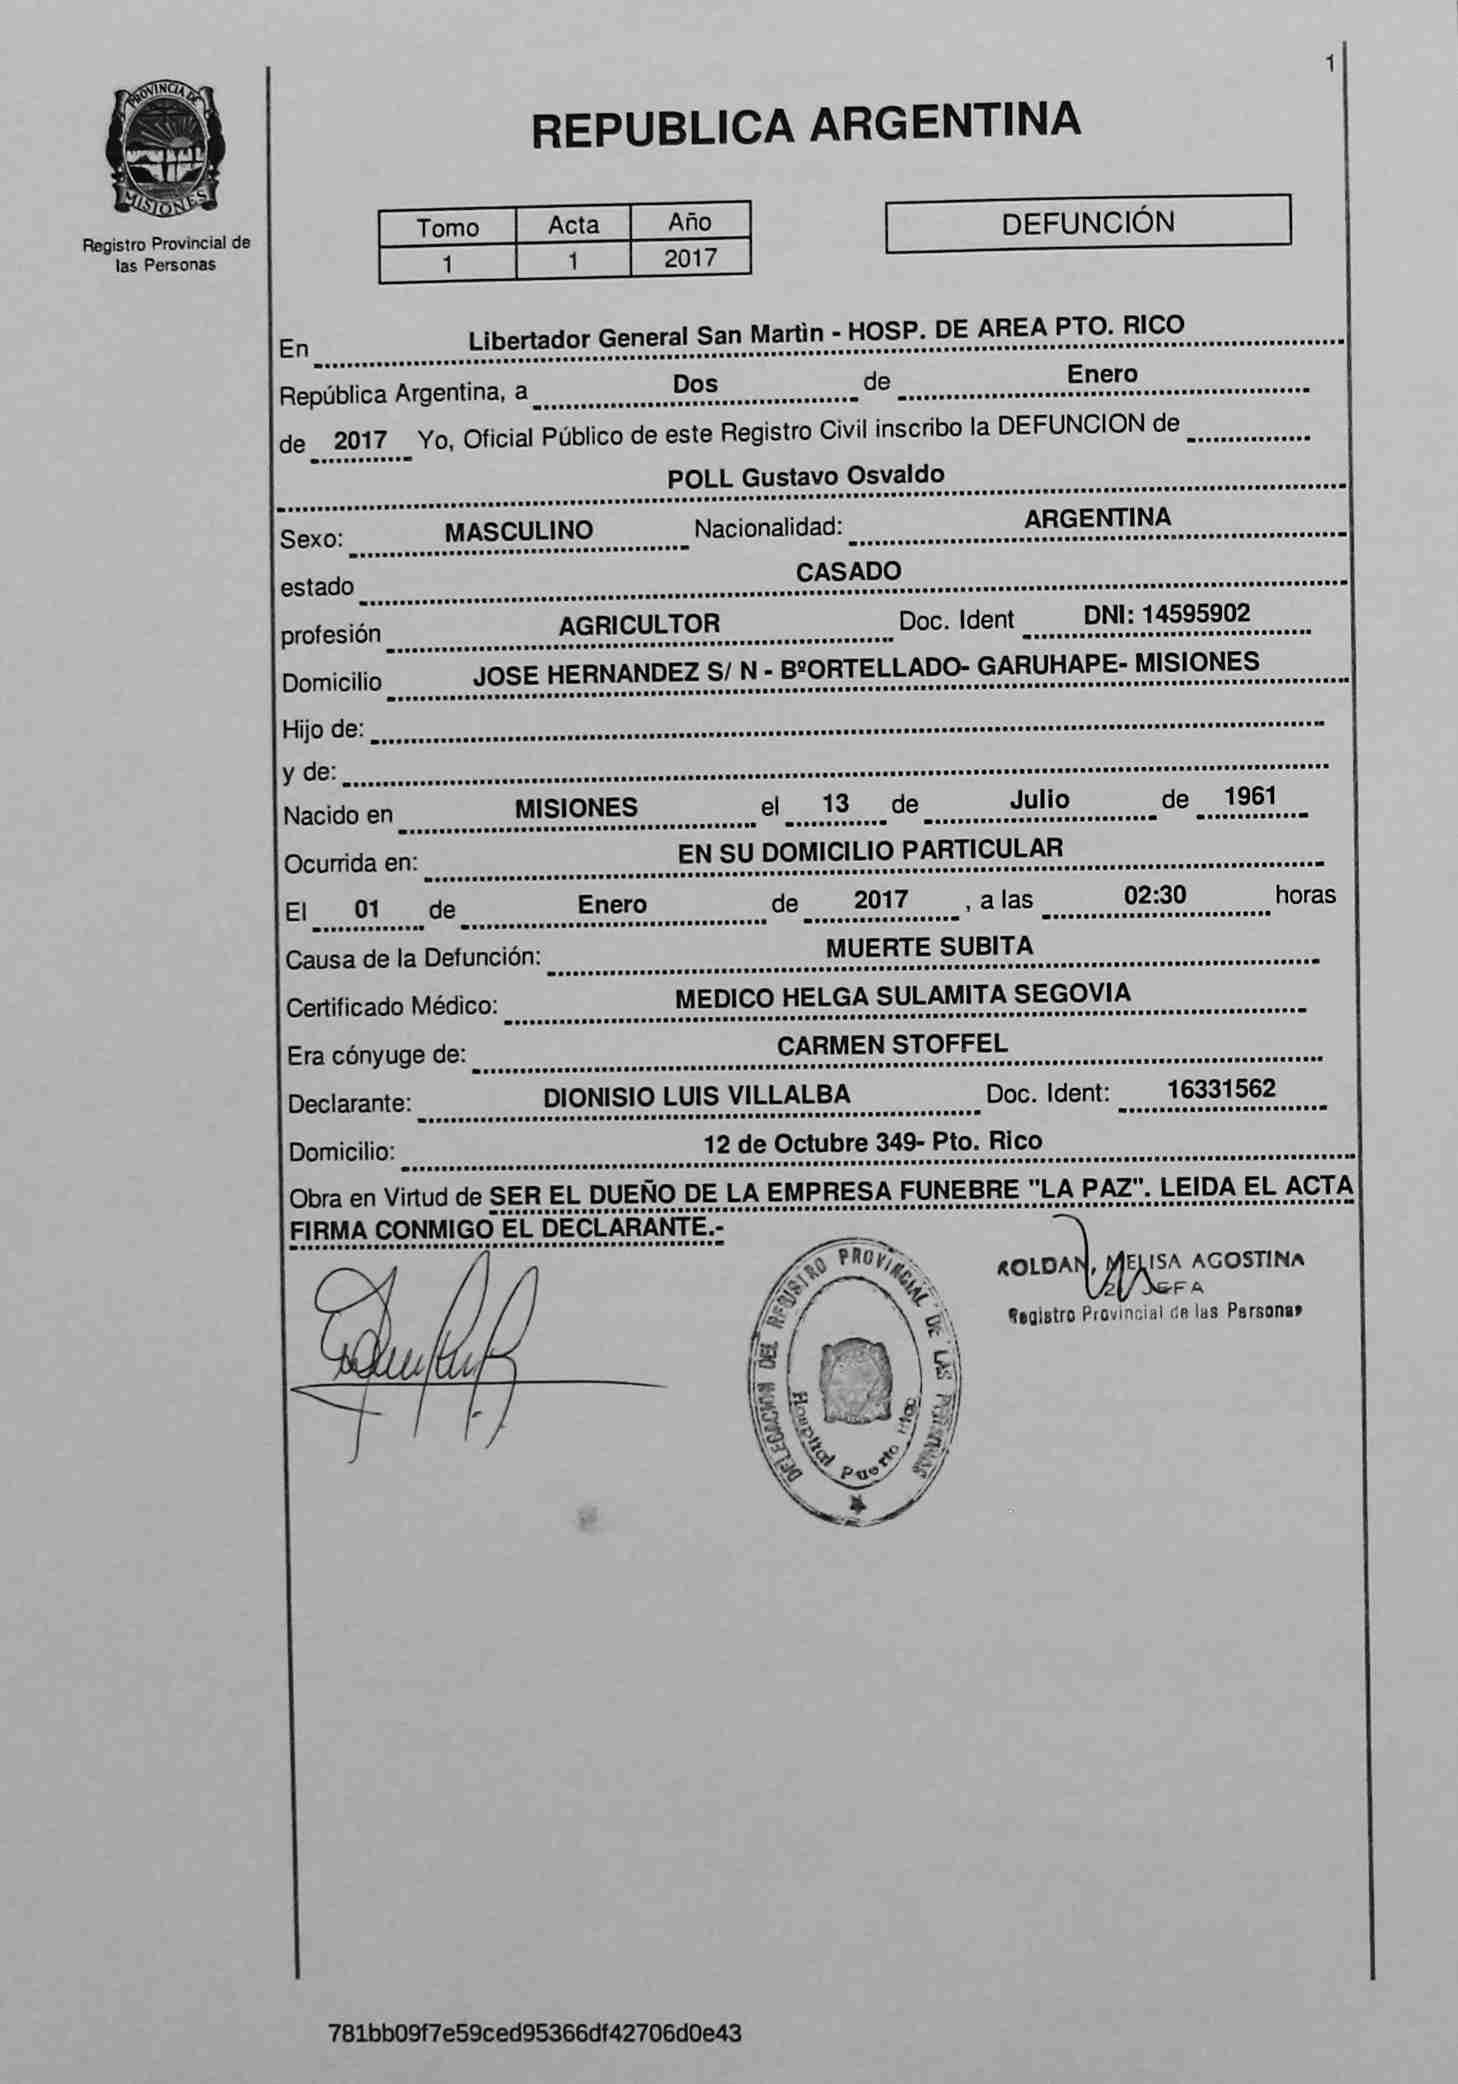 1
PROVINCIA DE
MISIONES
Registro Provincial de
las Personas
REPUBLICA ARGENTINA
Tomo Acta Año
1 1 2017
DEFUNCIÓN
En Libertador General San Martìn - HOSP. DE AREA PTO. RICO
República Argentina, a Dos de Enero
de 2017 Yo, Oficial Público de este Registro Civil inscribo la DEFUNCION de
POLL Gustavo Osvaldo
Sexo: MASCULINO Nacionalidad: ARGENTINA
estado CASADO
profesión AGRICULTOR Doc. Ident DNI: 14595902
Domicilio JOSE HERNANDEZ S/ N - BºORTELLADO- GARUHAPE- MISIONES
Hijo de:
y de:
Nacido en MISIONES el 13 de Julio de 1961
Ocurrida en: EN SU DOMICILIO PARTICULAR
El 01 de Enero de 2017 , a las 02:30 horas
Causa de la Defunción: MUERTE SUBITA
Certificado Médico: MEDICO HELGA SULAMITA SEGOVIA
Era cónyuge de: CARMEN STOFFEL
Declarante: DIONISIO LUIS VILLALBA Doc. Ident: 16331562
Domicilio: 12 de Octubre 349- Pto. Rico
Obra en Virtud de SER EL DUEÑO DE LA EMPRESA FUNEBRE "LA PAZ". LEIDA EL ACTA
FIRMA CONMIGO EL DECLARANTE.-
DELEGACION DEL REGISTRO PROVINCIAL DE LAS PERSONAS
Hospital Puerto Rico
ROLDAN, MELISA AGOSTINA
JEFA
Registro Provincial de las Personas
781bb09f7e59ced95366df42706d0e43